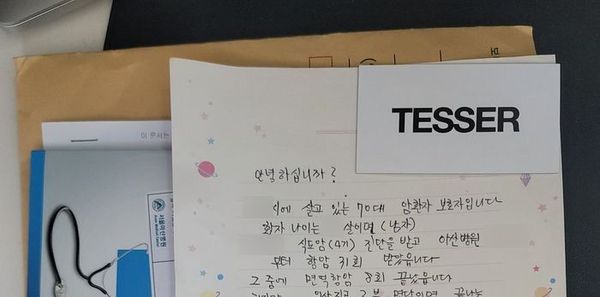 이 문서는
TESSER
안녕하십니까?
시에 살고 있는 70대 암환자 보호자입니다
환자 나이는 살이며 (남자)
식도암(4기) 진단을 받고 아산병원
부터 항암 31회 받았습니다
그 중에 면역항암 8회 끝났습니다
서울아산병원